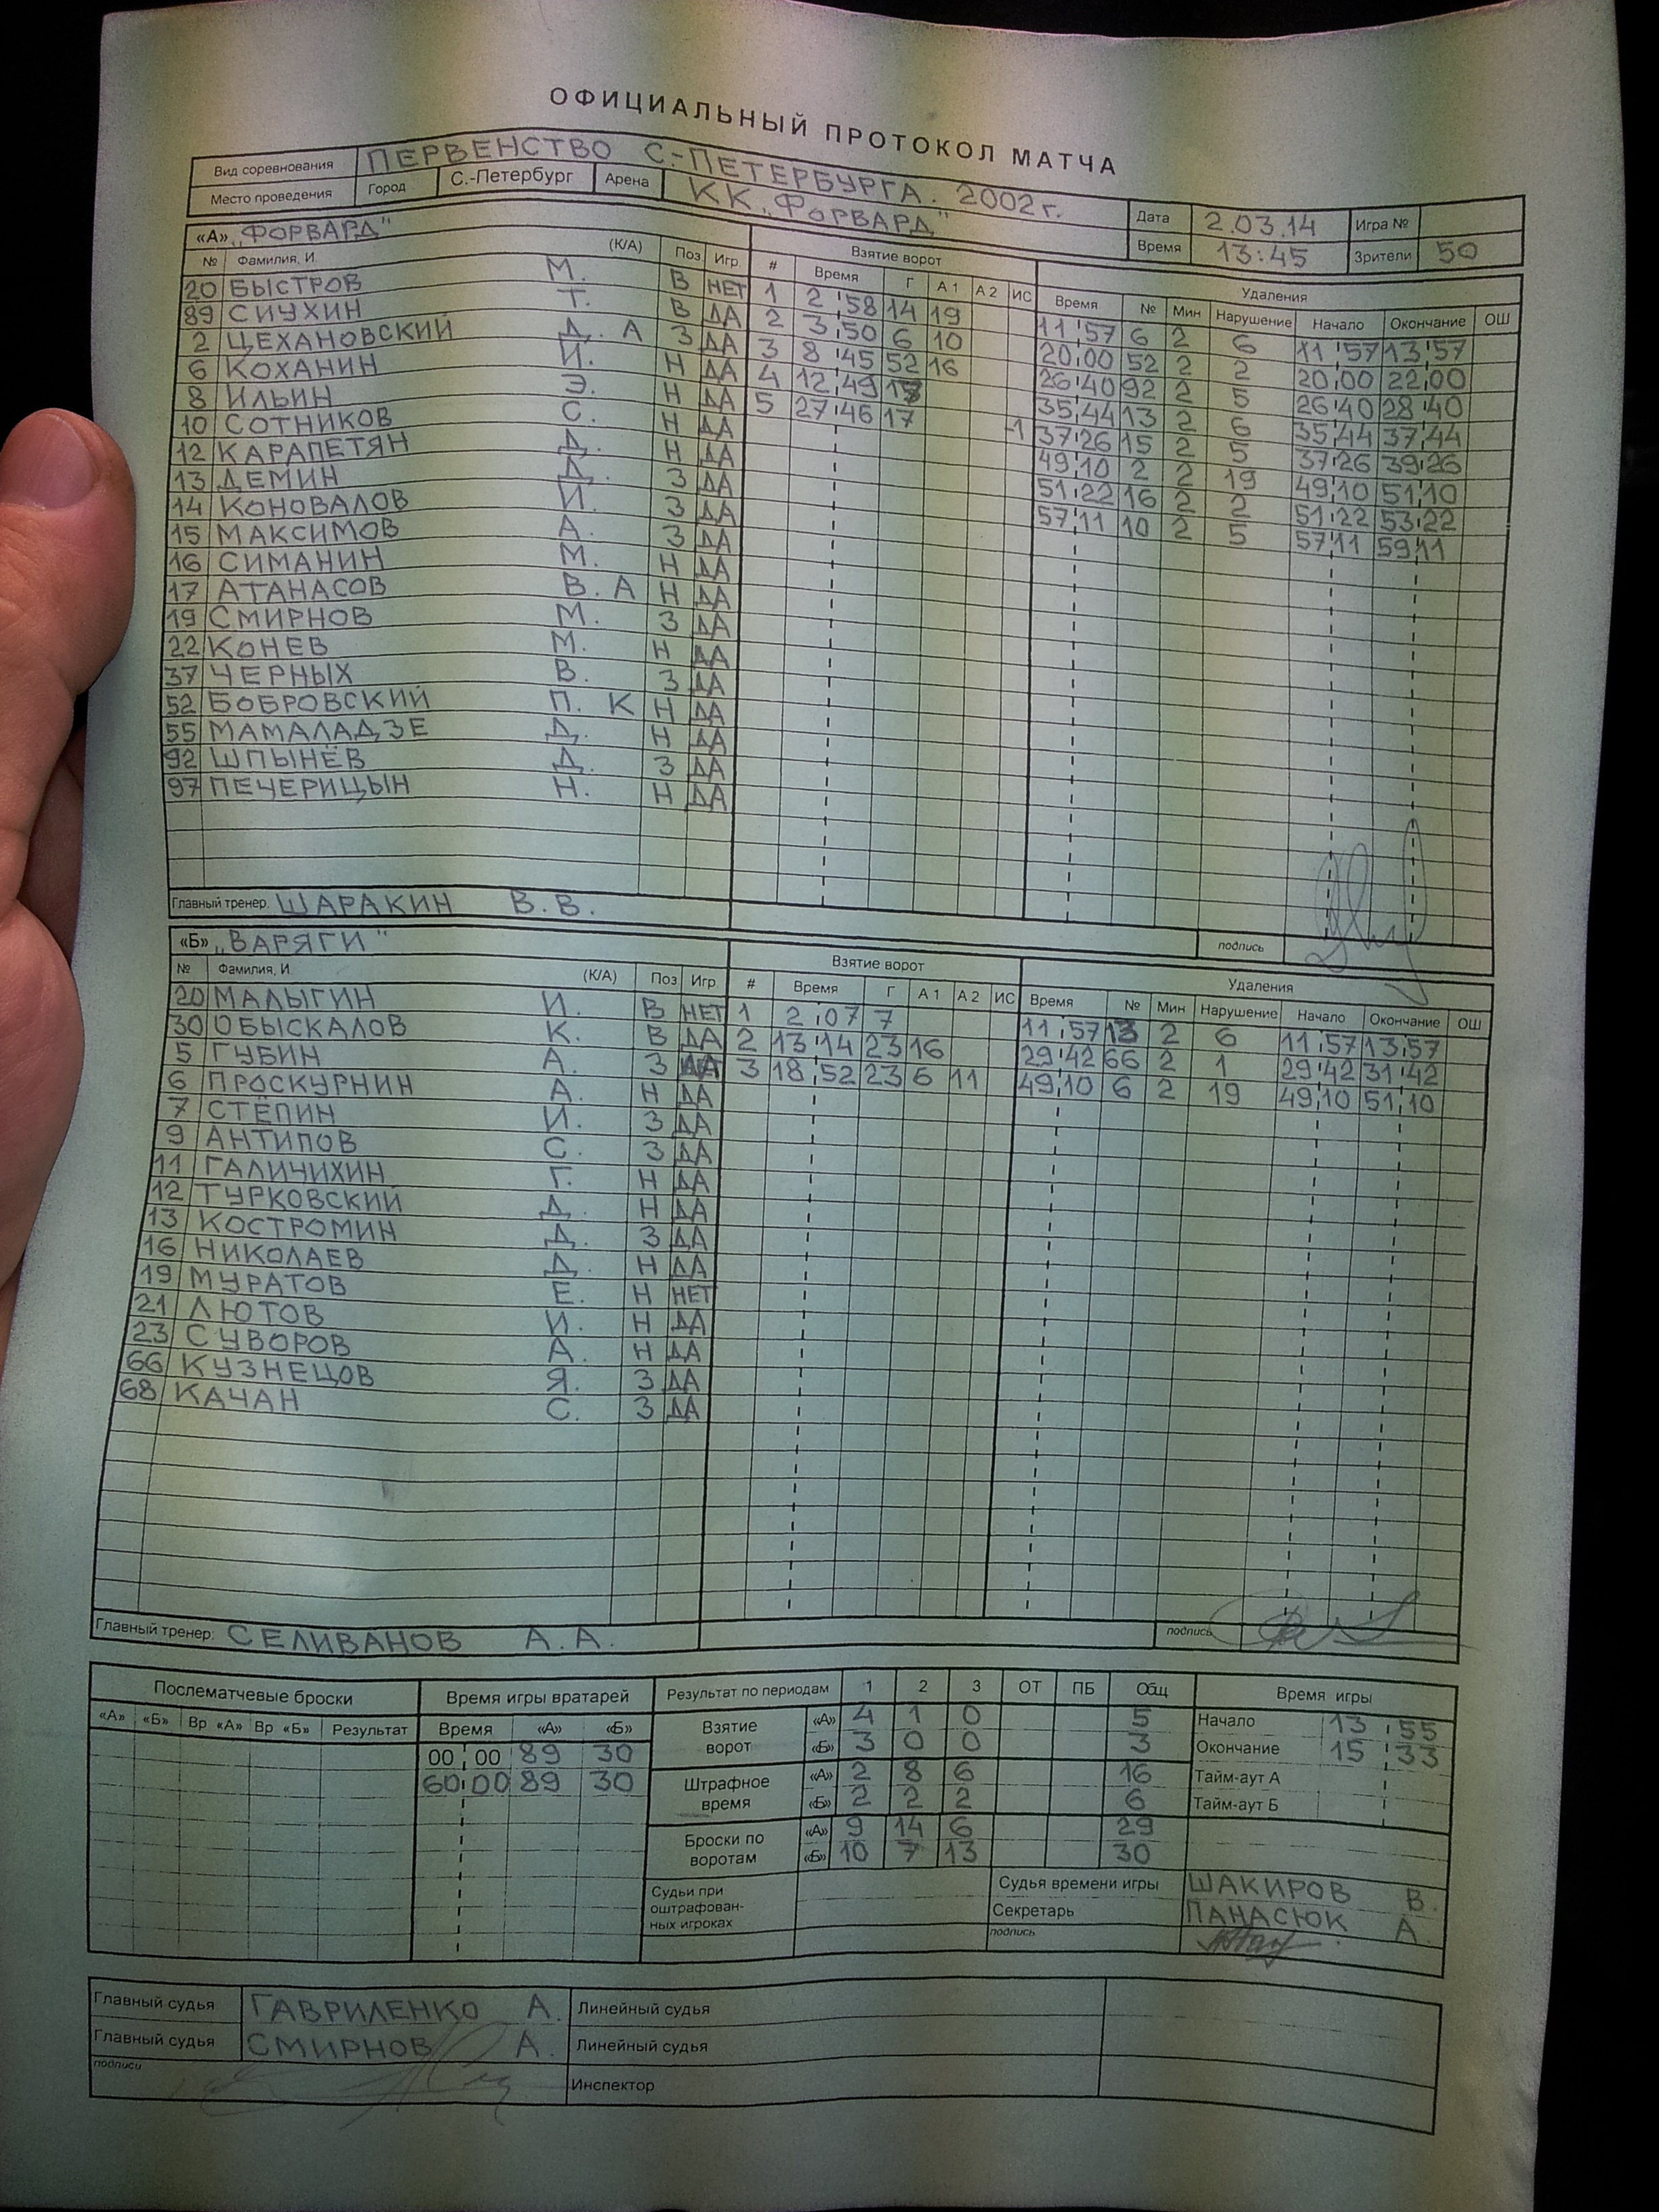 ОФИЦИАЛЬНЫЙ ПРОТОКОЛ МАТЧА
Вид соревнования ПЕРВЕНСТВО С.-ПЕТЕРБУРГА. 2002 г. Дата 2.03.14 Игра №
Место проведения Город С.-Петербург Арена КК „ФОРВАРД" Время 13:45 Зрители 50
«А» „ФОРВАРД" Взятие ворот Удаления
№ Фамилия, И. (К/А) Поз Игр. # Время Г А1 А2 ИС Время № Мин Нарушение Начало Окончание ОШ
20 БЫСТРОВ М. В НЕТ 1 2 58 14 19 11 57 6 2 6 11 57 13 57
89 СИЧХИН Т. В ДА 2 3 50 6 10 20 00 52 2 2 20 00 22 00
2 ЦЕХАНОВСКИЙ Д. А З ДА 3 8 45 52 16 26 40 92 2 5 26 40 28 40
6 КОХАНИН И. Н ДА 4 12 49 35 44 13 2 6 35 44 37 44
8 ИЛЬИН Э. Н ДА 5 27 46 17 -1 37 26 15 2 5 37 26 39 26
10 СОТНИКОВ С. Н ДА 49 10 2 2 19 49 10 51 10
12 КАРАПЕТЯН Д. Н ДА 51 22 16 2 2 51 22 53 22
13 ДЕМИН Д. З ДА 57 11 10 2 5 57 11 59 11
14 КОНОВАЛОВ И. З ДА
15 МАКСИМОВ А. З ДА
16 СИМАНИН М. Н ДА
17 АТАНАСОВ В. А Н ДА
19 СМИРНОВ М. З ДА
22 КОНЕВ М. Н ДА
37 ЧЕРНЫХ В. З ДА
52 БОБРОВСКИЙ П. К Н ДА
55 МАМАЛАДЗЕ Д. Н ДА
92 ШПЫНЁВ Д. З ДА
97 ПЕЧЕРИЦЫН Н. Н ДА
Главный тренер. ШАРАКИН В.В. подпись
«Б» „ВАРЯГИ" Взятие ворот Удаления
№ Фамилия, И. (К/А) Поз Игр. # Время Г А1 А2 ИС Время № Мин Нарушение Начало Окончание ОШ
20 МАЛЫГИН И. В НЕТ 1 2 07 7 11 57 13 2 6 11 57 13 57
30 ОБЫСКАЛОВ К. В ДА 2 13 14 23 16 29 42 66 2 1 29 42 31 42
5 ГУБИН А. З ДА 3 18 52 23 6 11 49 10 6 2 19 49 10 51 10
6 ПРОСКУРНИН А. Н ДА
7 СТЁПИН И. З ДА
9 АНТИПОВ С. З ДА
11 ГАЛИЧИХИН Г. Н ДА
12 ТУРКОВСКИЙ Д. Н ДА
13 КОСТРОМИН Д. З ДА
16 НИКОЛАЕВ Д. Н ДА
19 МУРАТОВ Е. Н НЕТ
21 ЛЮТОВ И. Н ДА
23 СУВОРОВ А. Н ДА
66 КУЗНЕЦОВ Я. З ДА
68 КАЧАН С. З ДА
Главный тренер: СЕЛИВАНОВ А.А. подпись
Послематчевые броски Время игры вратарей Результат по периодам 1 2 3 ОТ ПБ Общ Время игры
«А» «Б» Вр «А» Вр «Б» Результат Время «А» «Б» Взятие ворот «А» 4 1 0 5 Начало 13 55
00 00 89 30 «Б» 3 0 0 3 Окончание 15 33
60 00 89 30 Штрафное время «А» 2 8 6 16 Тайм-аут А
«Б» 2 2 2 6 Тайм-аут Б
Броски по воротам «А» 9 14 6 29
«Б» 10 7 13 30
Судьи при оштрафован-ных игроках Судья времени игры ШАКИРОВ В.
Секретарь ПАНАСЮК А.
подпись
Главный судья ГАВРИЛЕНКО А. Линейный судья
Главный судья СМИРНОВ А. Линейный судья
подписи Инспектор